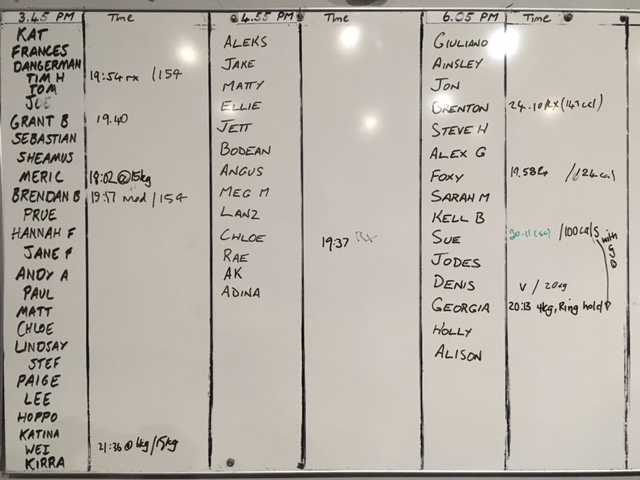 3.45 PM Time
KAT
FRANCES
DANGERMAN
TIM H 19:54 rx /154
TOM
JOE
GRANT B 19.40
SEBASTIAN
SHEAMUS
MERIC 18:02 @15kg
BRENDAN B 19:17 mod /154
PRUE
HANNAH F
JANE F
ANDY A
PAUL
MATT
CHLOE
LINDSAY
STEF
PAIGE
LEE
HOPPO
KATINA
WEI 21:36 @ 6kg/15kg
KIRRA
4.55 PM Time
ALEKS
JAKE
MATTY
ELLIE
JETT
BODEAN
ANGUS
MEG M
LANZ
CHLOE 19:37 Rx
RAE
AK
ADINA
6.05 PM Time
GIULIANO
AINSLEY
JON
BRENTON 24.10 RX (147 cal)
STEVE H
ALEX G
FOXY 19.58 Rx /124 cal
SARAH M
KELL B
SUE 20.11 (sc) /100 cals
with
JODES
DENIS V / 20kg
GEORGIA 20:13 4kg, Ring hold
HOLLY
ALISON